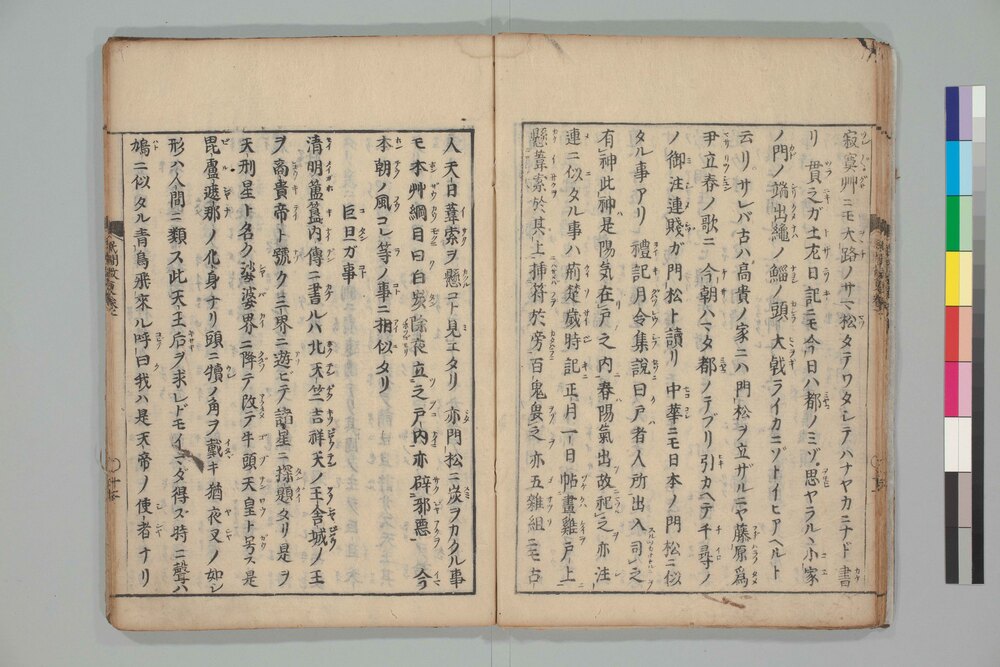 寂寞艸ニモ大路ノサマ松タテワタシテハナヤカニナド書
リ貫之ガ土左日記ニモ今日ハ都ノミゾ思ヤラルヽ小家
ノ門ノ端出繩ノ鯔ノ頭大戟ライカニゾトイヒアヘルト
云リサレバ古ハ高貴ノ家ニハ門松ヲ立ザルニヤ藤原爲
尹立春ノ歌ニ今朝ハマタ都ノテブリ引カヘテ千尋ノ
ノ御注連賤ガ門松ト讀リ中華ニモ日本ノ門松ニ似
タル事アリ禮記月令集說曰戸者人所出入司之
有神此神是陽気在戸之内春陽氣出故祀之亦注
連ニ似タル事ハ荊楚歲時記正月一日帖畫雞戸上
懸葦索於其上挿符於旁百鬼畏之亦五雜組ニモ古
人天日葦索ヲ懸コト見エタリ亦門松ニ炭ヲカクル事
モ本艸綱目曰白炭除夜立之戸内亦辟邪惡今
本朝ノ風コレ等ノ事ニ相似タリ
巨旦ガ事
清明簠簋内傳ニ書ルハ北天竺吉祥天ノ王舎城ノ王
ヲ商貴帝ト號ク三界ニ遊ヒテ諸星ニ探題タリ是ヲ
天刑星ト名ク娑婆界ニ降テ改テ牛頭天皇ト号ス是
毘盧遮那ノ化身ナリ頭ニ犢ノ角ヲ戴キ猶夜叉ノ如シ
形ハ人間ニ類ス此天王后ヲ求レドモイマダ得ズ時ニ聲ハ
鳩ニ似タル青鳥飛來ル呼曰我ハ是天帝ノ使者ナリ